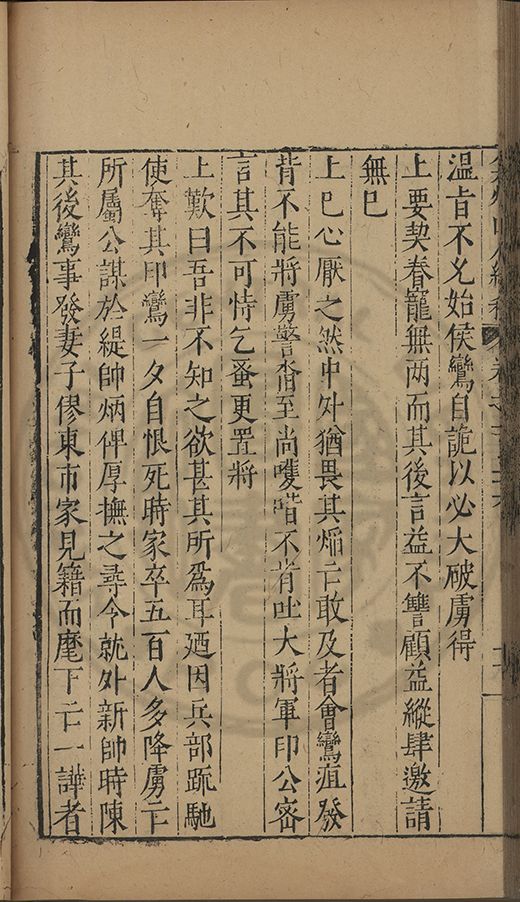 温旨不允始侯鸞自詭以必大破虜得
上要契眷寵無两而其後言益不讐顧益縱肆邀請
無已
上已心厭之然中外猶畏其焰亡敢及者會鸞疽發
背不能將虜警沓至尚嚄唶不肯吐大將軍印公密
言其不可恃乞蚤更置將
上歎曰吾非不知之欲甚其所爲耳廼因兵部疏馳
使奪其印鸞一夕自恨死時家卒五百人多降虜亡
所屬公謀於緹帥炳俾厚撫之尋令就外新帥時陳
其後鸞事發妻子僇東市家見籍而麾下亡一譁者